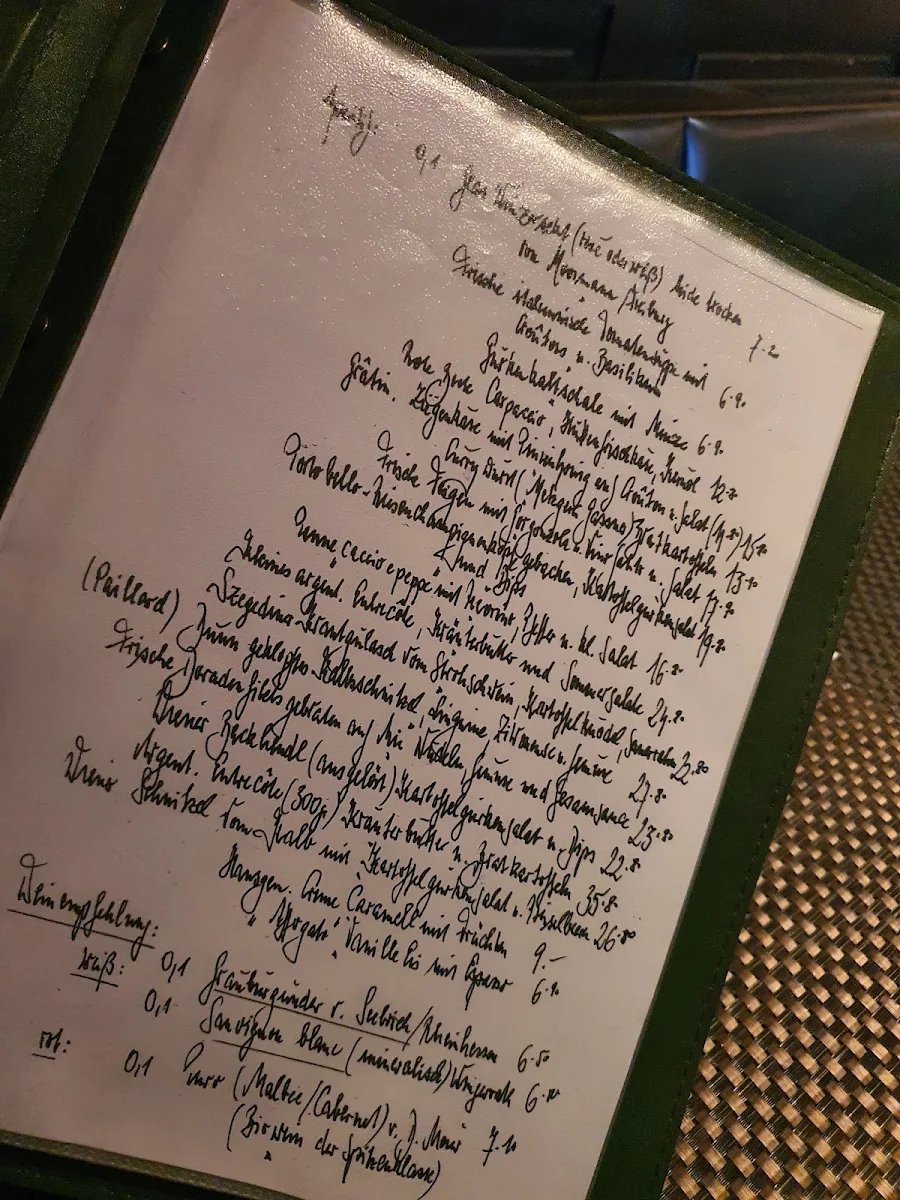 0,1 (rosé oder weiß) beide trocken
von 7.20
Frische italienische Tomatensuppe mit
Croûtons u. Basilikum 6.90
Gurkenkaltschale mit Minze 6.90
Rote Beete Carpaccio, Hüttenfrischkäse, 12.
Gratin. Ziegenkäse mit auf Croûton u. Salat
Currywurst ( ) Bratkartoffeln 13.90
Frische Feigen mit Gorgonzola u. u. Salat 17.90
Portobello-Riesenchampignonkopf gebacken, Kartoffelgurkensalat 19.80
und Dips
Penne "caccio e pepe" mit Pecorino, Pfeffer u. kl. Salat 16.80
Kleines argent. Entrecôte, Kräuterbutter und Sommersalate 24.80
Szegediner Krautgulasch vom Kartoffelknödel, 22.80
(Paillard) Dünn geklopftes Kalbsschnitzel, Linguine, Zitronen u. Gemüse 27.80
Frische filets gebraten auf Mie Nudeln, Gemüse und Sesamsauce 23.80
Wiener Backhendl (ausgelöst) Kartoffelgurkensalat u. Dips 22.80
Argent. Entrecôte (300gr) Kräuterbutter u. Bratkartoffeln 35.80
Wiener Schnitzel vom Kalb mit Kartoffelgurkensalat u. Preiselbeeren 26.80
Hausgem. Creme Caramell mit Früchten 9.-
"Affogato" Vanilleeis mit Espresso 6.90
Weinempfehlung:
weiß: 0,1 Grauburgunder v. /Rheinhessen 6.50
0,1 Sauvignon blanc (mineralisch) 6.
rot: 0,1 (Malbec/Cabernet) v. 7.10
(Biowein der Spitzenklasse)